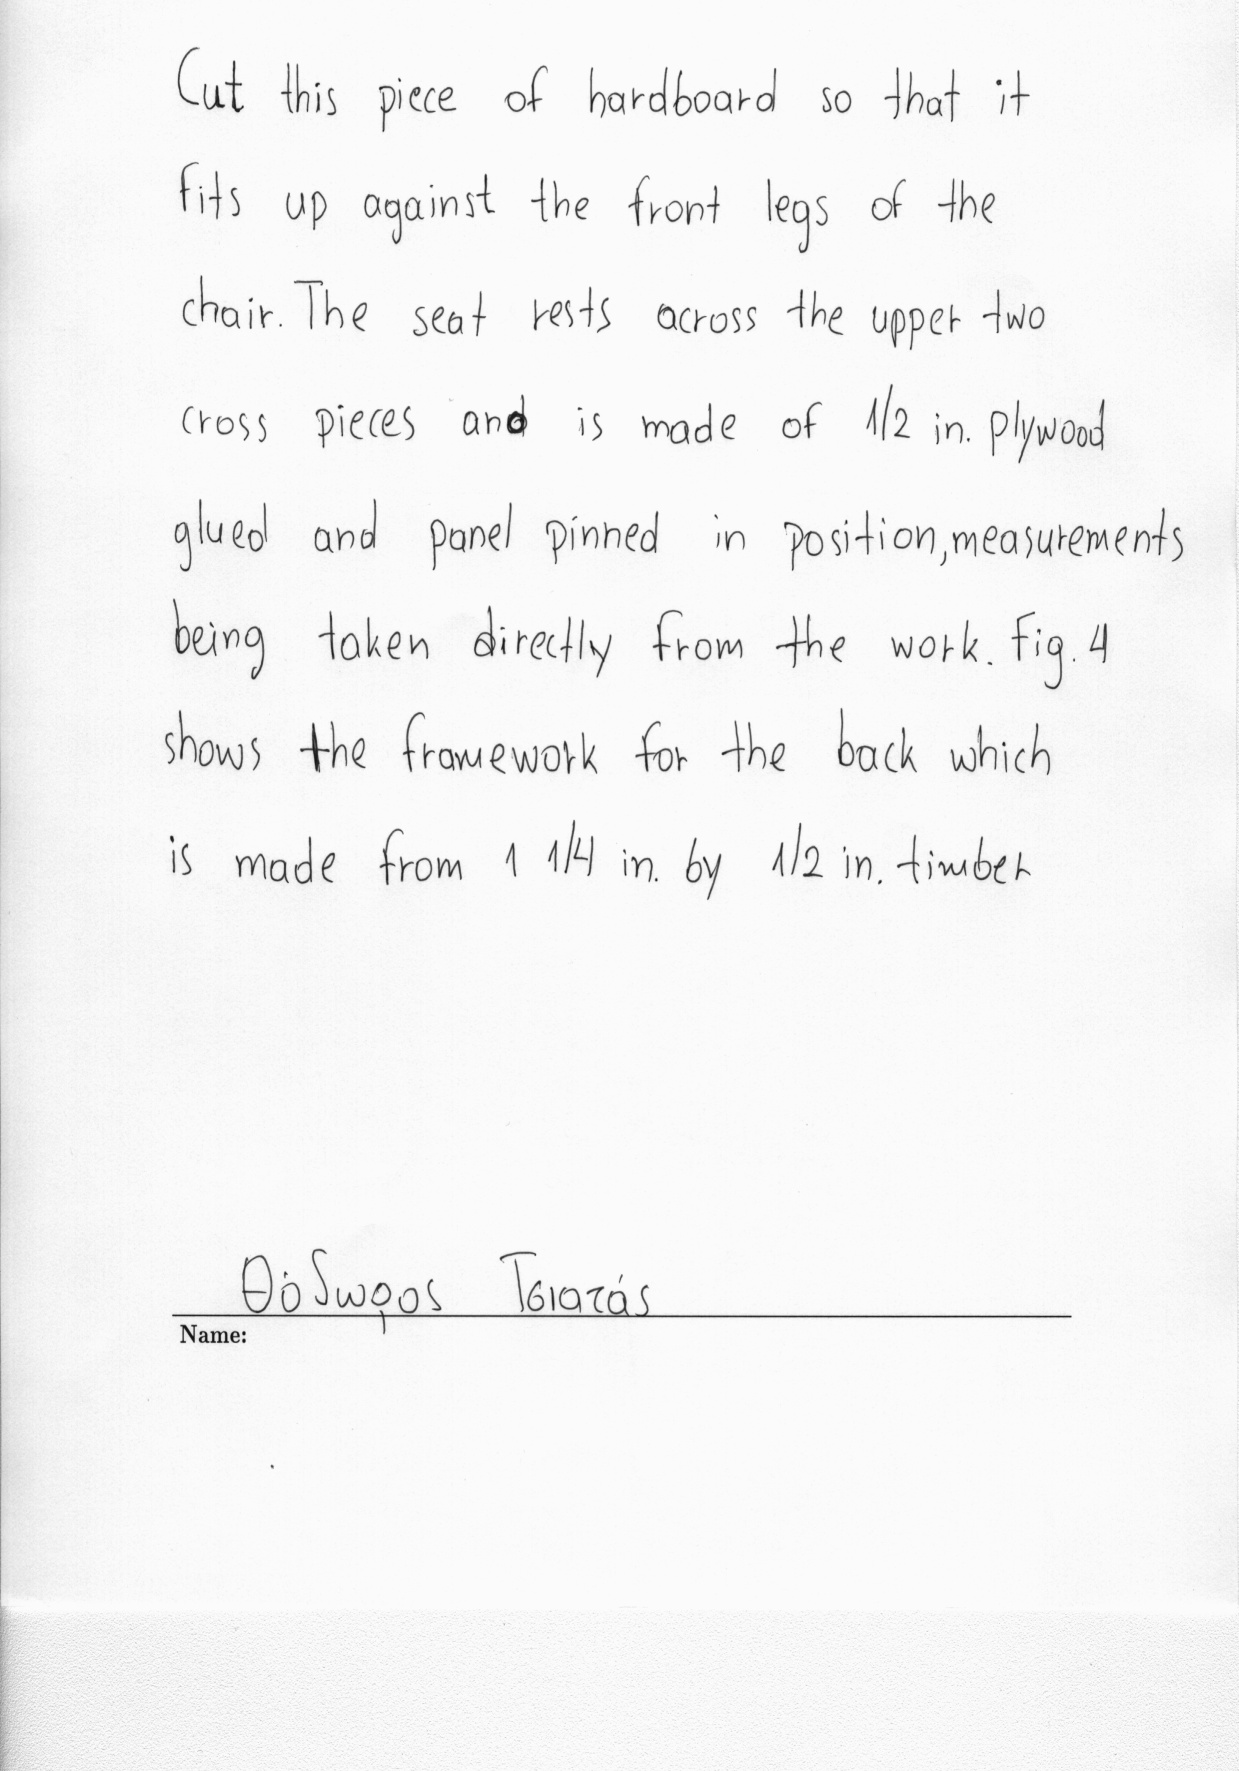 Cut this piece of hardboard so that it
fits up against the front legs of the
chair. The seat rests across the upper two
cross pieces and is made of 1/2 in. plywood
glued and panel pinned in position, measurements
being taken directly from the work. Fig. 4
shows the framework for the back which
is made from 1 1/4 in. by 1/2 in. timber
Θόδωρος Τσιατάς
Name: